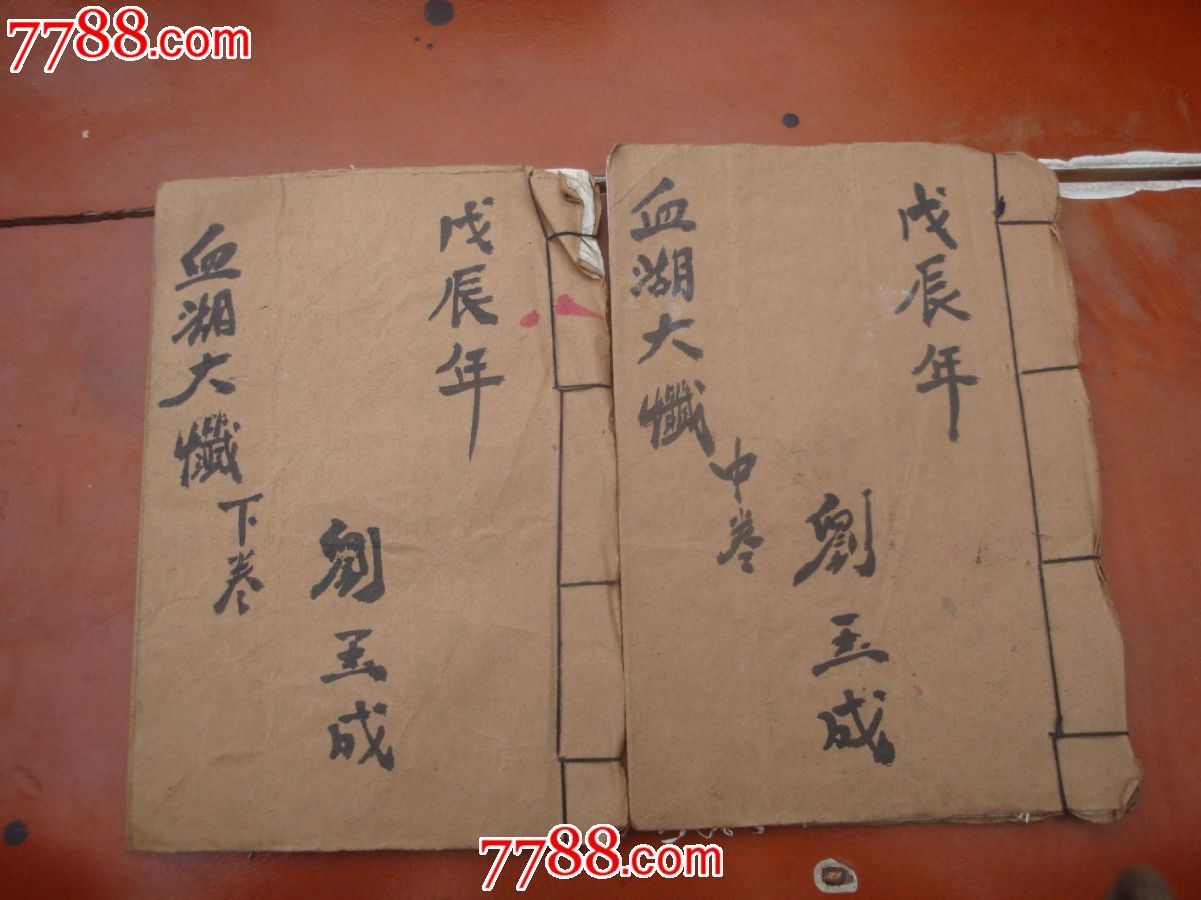 7788.com
戊辰年
劉玉成
血湖大懺
中卷
戊辰年
劉玉成
血湖大懺
下卷
7788.com